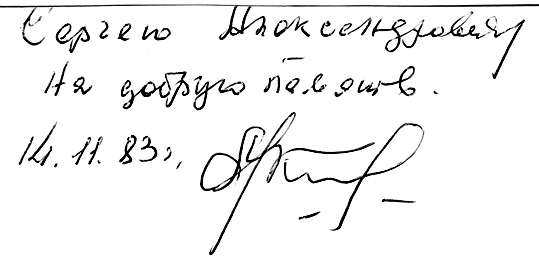 Сергею Александровичу
На добрую память.
14.11.83г.